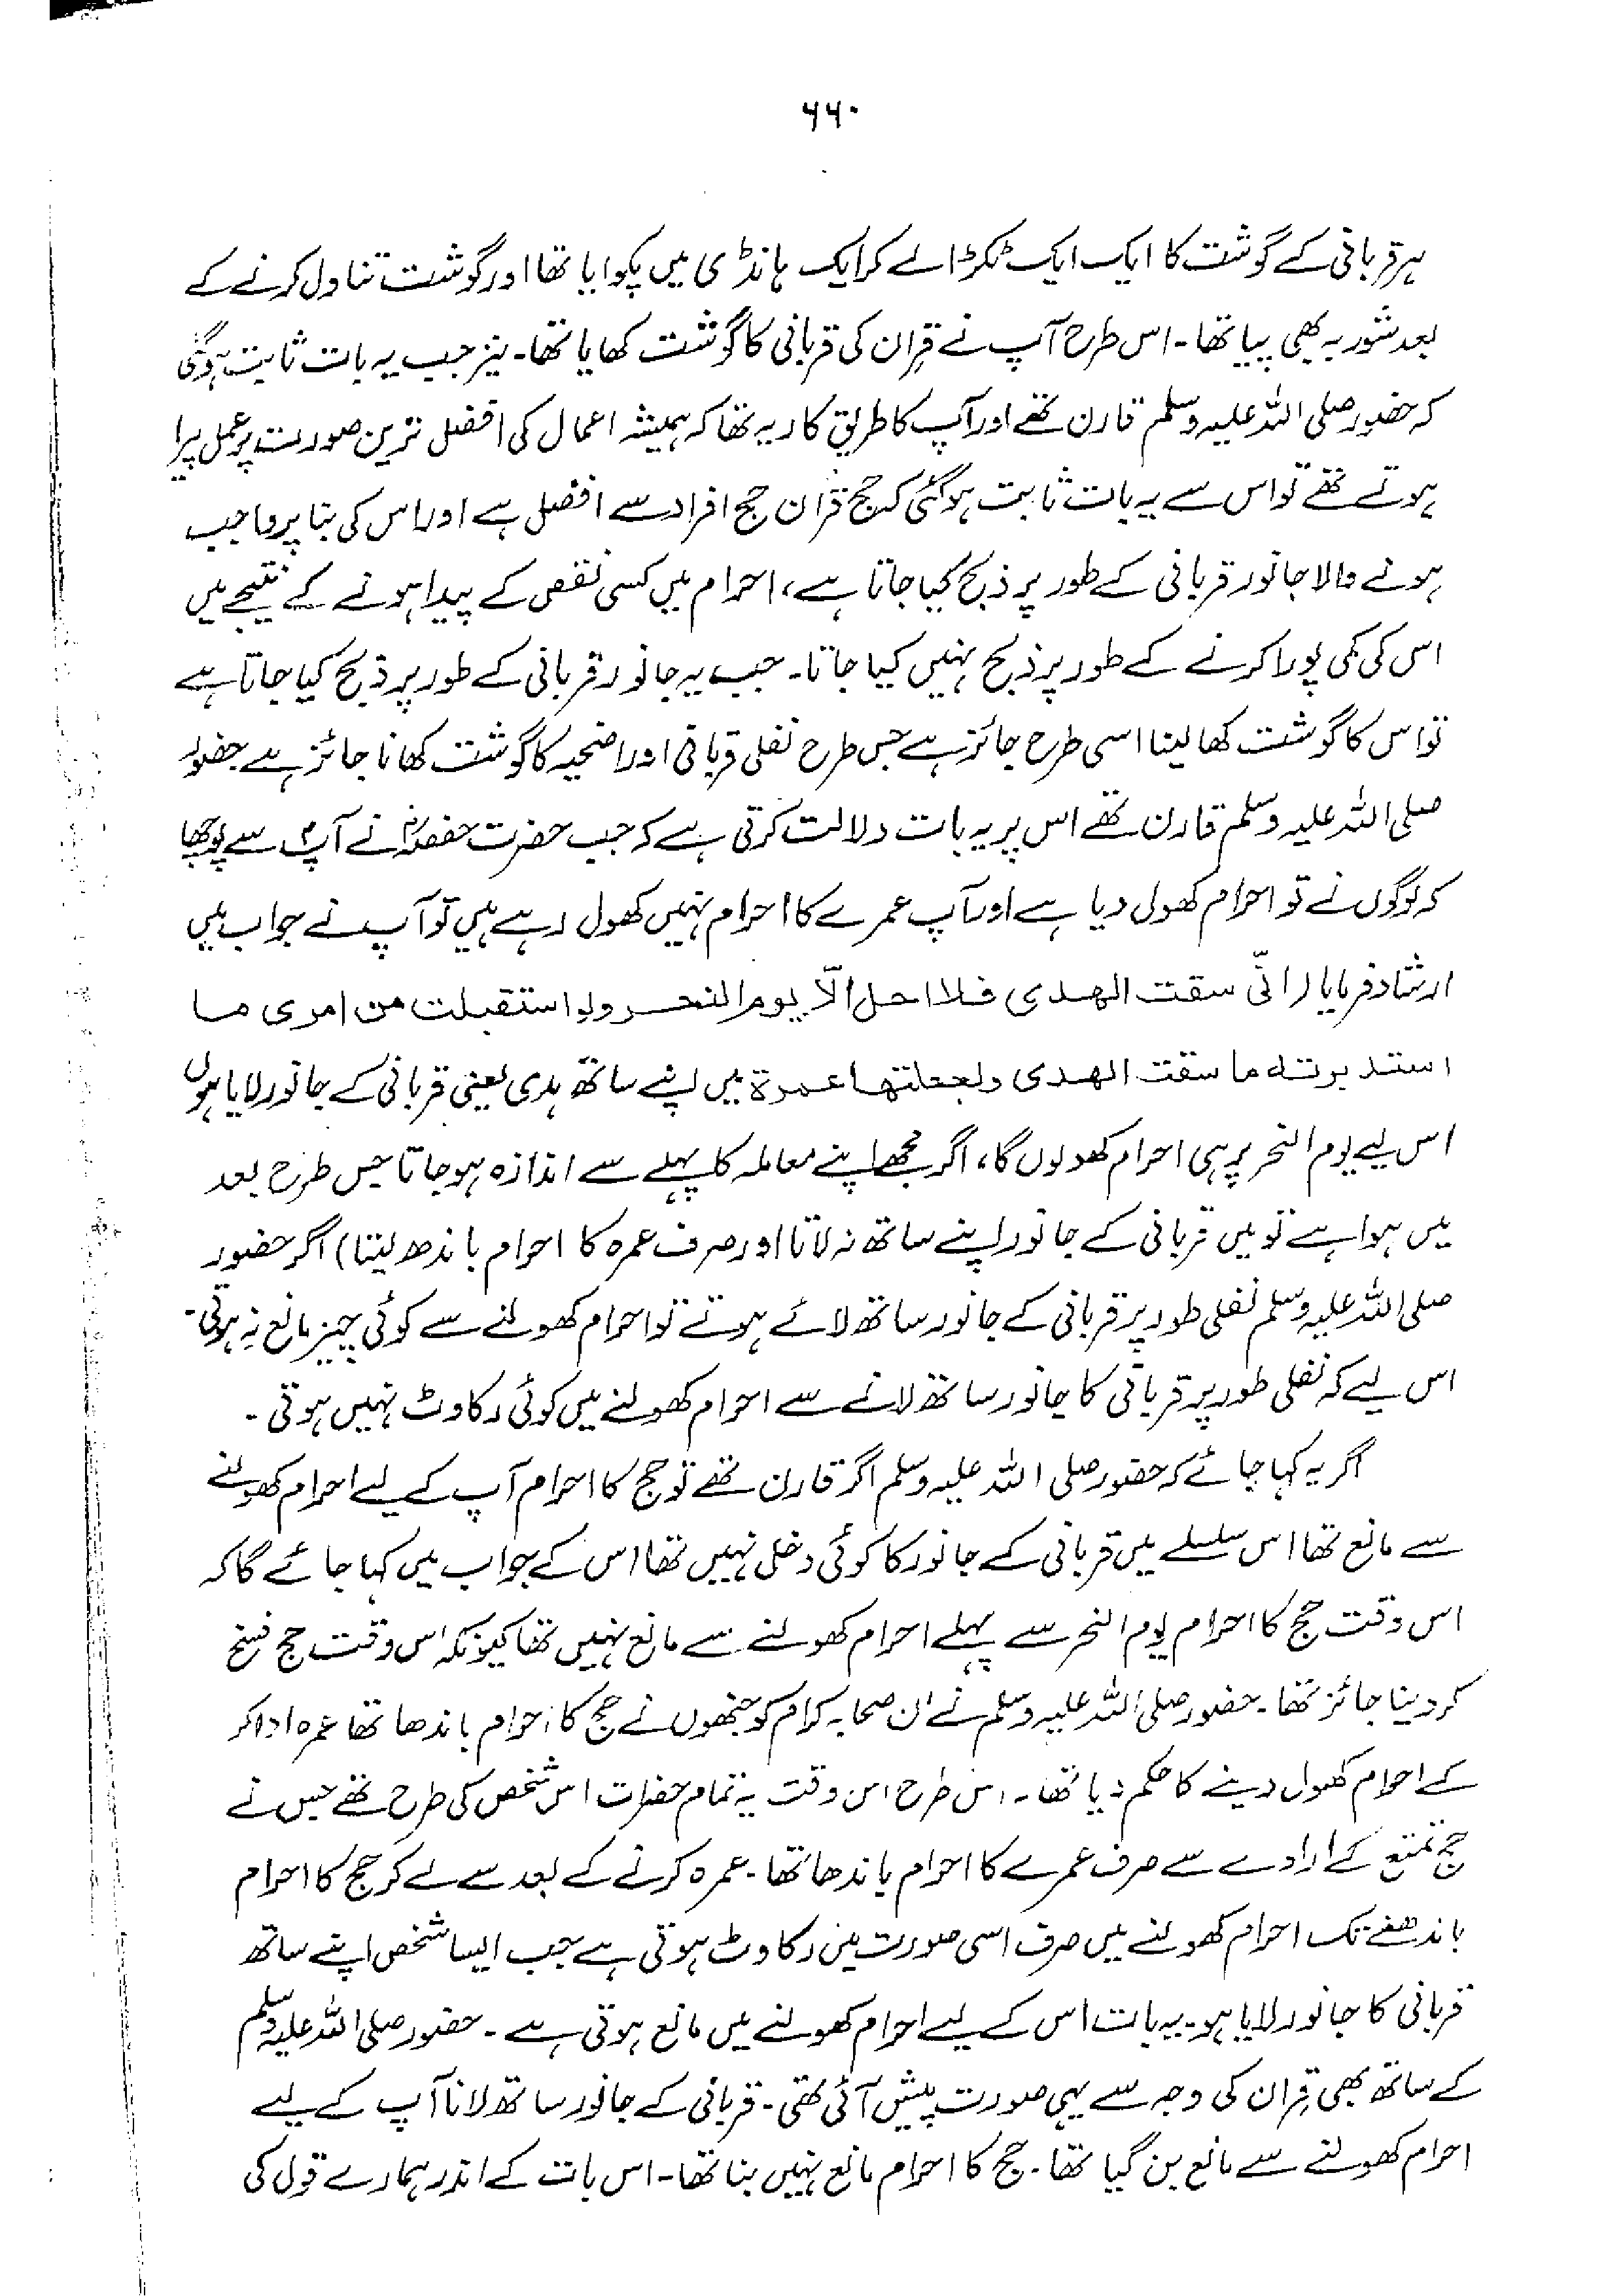 ۶۶۰
ہر قربانی کے گوشت کا ایک ایک ٹکڑا لے کر ایک ہانڈی میں پکوایا تھا اور گوشت تناول کرنے کے
بعد شوربہ بھی پیا تھا۔ اس طرح آپ نے قِران کی قربانی کا گوشت کھایا تھا۔ نیز جب یہ بات ثابت ہوگئی
کہ حضور صلی اللہ علیہ وسلم قارن تھے اور آپ کا طریق کار یہ تھا کہ ہمیشہ اعمال کی افضل ترین صورت پر عمل پیرا
ہوتے تھے تو اس سے یہ بات ثابت ہوگئی کہ حج قران حج افراد سے افضل ہے اور اس کی بنا پر واجب
ہونے والا جانور قربانی کے طور پر ذبح کیا جاتا ہے، احرام میں کسی نقص کے پیدا ہونے کے نتیجے میں
اس کی کمی پورا کرنے کے طور پر ذبح نہیں کیا جاتا۔ جب یہ جانور قربانی کے طور پر ذبح کیا جاتا ہے
تو اس کا گوشت کھا لینا اسی طرح جائز ہے جس طرح نفلی قربانی اور اضحیہ کا گوشت کھانا جائز ہے حضور
صلی اللہ علیہ وسلم قارن تھے اس پر یہ بات دلالت کرتی ہے کہ جب حضرت حفصہؓ نے آپؐ سے پوچھا
کہ لوگوں نے تو احرام کھول دیا ہے اور آپ عمرے کا احرام نہیں کھول رہے ہیں تو آپ نے جواب میں
ارشاد فرمایا (انّی سقت الهدی فلا احل الّا یوم النحر ولو استقبلت من امری ما
استدبرته ما سقت الهدی ولجعلتها عمرة میں اپنے ساتھ ہدی یعنی قربانی کے جانور لایا ہوں
اس لیے یوم النحر پر ہی احرام کھولوں گا، اگر مجھے اپنے معاملہ کا پہلے سے اندازہ ہو جاتا جس طرح بعد
میں ہوا ہے تو میں قربانی کے جانور اپنے ساتھ نہ لاتا اور صرف عمرہ کا احرام باندھ لیتا) اگر حضور
صلی اللہ علیہ وسلم نفلی طور پر قربانی کے جانور ساتھ لائے ہوتے تو احرام کھولنے سے کوئی چیز مانع نہ ہوتی۔
اس لیے کہ نفلی طور پر قربانی کا جانور ساتھ لانے سے احرام کھولنے میں کوئی رکاوٹ نہیں ہوتی۔
اگر یہ کہا جائے کہ حضور صلی اللہ علیہ وسلم اگر قارن تھے تو حج کا احرام آپ کے لیے احرام کھولنے
سے مانع تھا اس سلسلے میں قربانی کے جانور کا کوئی دخل نہیں تھا اس کے جواب میں کہا جائے گا کہ
اس وقت حج کا احرام یوم النحر سے پہلے احرام کھولنے سے مانع نہیں تھا کیونکہ اس وقت حج فسخ
کر دینا جائز تھا۔ حضور صلی اللہ علیہ وسلم نے ان صحابہ کرام کو جنھوں نے حج کا احرام باندھا تھا عمرہ ادا کر
کے احرام کھول دینے کا حکم دیا تھا۔ اس طرح اس وقت یہ تمام حضرات اس شخص کی طرح تھے جس نے
حج تمتع کے ارادے سے صرف عمرے کا احرام باندھا تھا۔ عمرہ کرنے کے بعد سے لے کر حج کا احرام
باندھنے تک احرام کھولنے میں صرف اسی صورت میں رکاوٹ ہوتی ہے جب ایسا شخص اپنے ساتھ
قربانی کا جانور لایا ہو۔ یہ بات اس کے لیے احرام کھولنے میں مانع ہوتی ہے۔ حضور صلی اللہ علیہ وسلم
کے ساتھ بھی قِران کی وجہ سے یہی صورت پیش آئی تھی۔ قربانی کے جانور ساتھ لانا آپ کے لیے
احرام کھولنے سے مانع بن گیا تھا۔ حج کا احرام مانع نہیں بنا تھا۔ اس بات کے اندر ہمارے قول کی